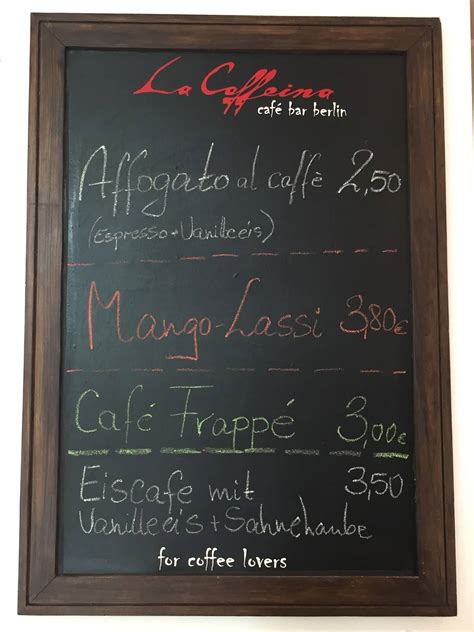 La Caffeina
café bar berlin
Affogato al caffè 2,50
(Espresso+Vanilleeis)
Mango-Lassi 3,80€
Café Frappé 3,00€
Eiscafe mit 3,50
Vanilleeis+Sahnehaube
for coffee lovers